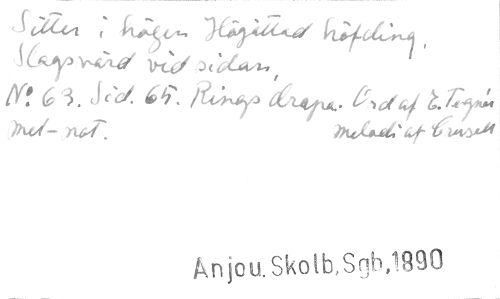 Sitter i högen Högättad höfding,
Slagsvärd vid sidan,
No. 63. Sid. 65. Rings drapa. Ord af E. Tegnér
met-not. melodi af Crusell
Anjou. Skolb, Sgb, 1890